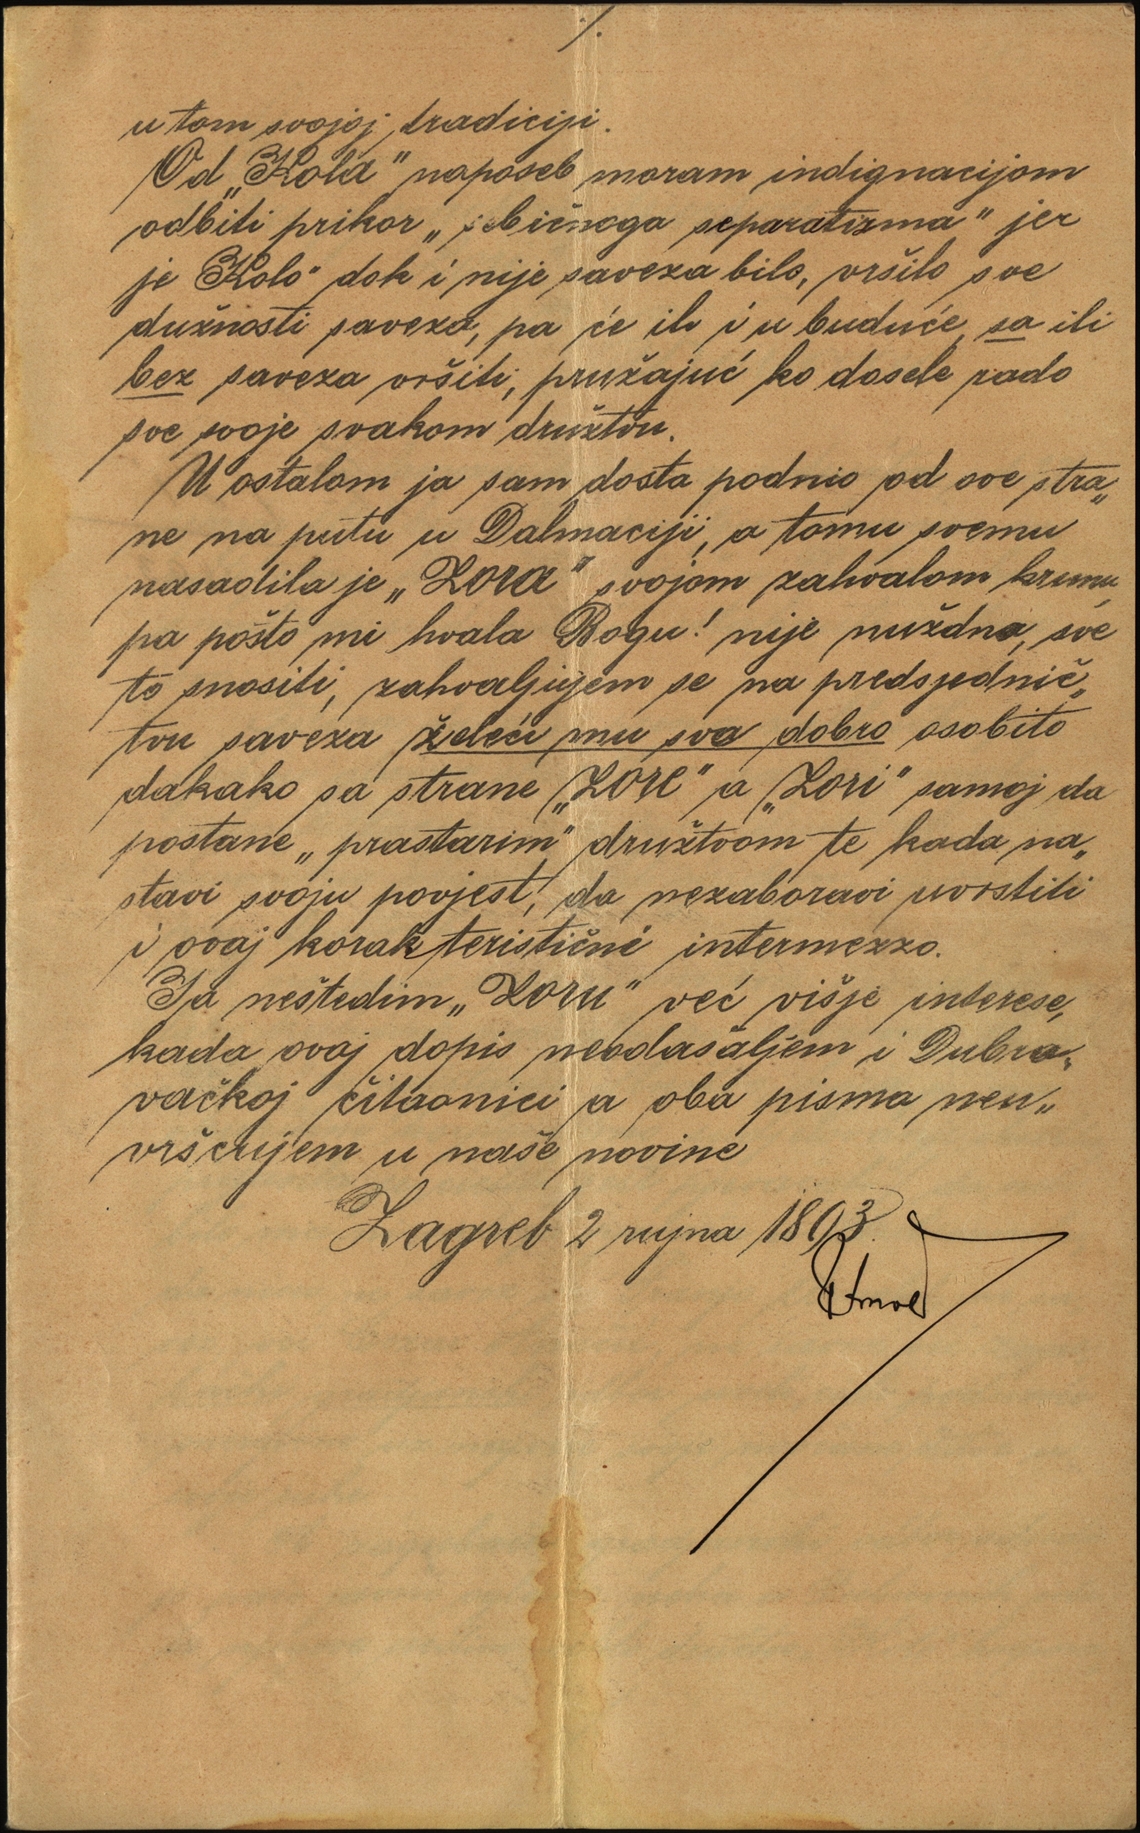 /.
u tom svojoj tradiciji.
Od „Kola" naposeb moram indignacijom
odbiti prikor „sebičnoga separatizma" jer
je Kolo" dok i nije saveza bilo, vršilo sve
dužnosti saveza, pa će ih i u buduće sa ili
bez saveza vršiti, pružajuć ko dosele rado
sve svoje svakom družtvu.
U ostalom ja sam dosta podnio od ove stra„
ne na putu u Dalmaciji, a tomu svemu
nasadila je „Zora" svojom zahvalom krunu,
pa pošto mi hvala Bogu! nije nuždno, sve
to snositi, zahvaljujem se na predsjednič„
tvu saveza želeći mu sva dobro osobito
dakako sa strane „Zore" a „Zori" samoj da
postane „prastarim" družtvom te kada na„
stavi svoju povjest, da nezaboravi uvrstiti
i ovaj korakteristični intermezzo.
Ja neštedim „Zoru" već višje interese,
kada ovaj dopis neodašaljem i Dubro„
vačkoj čitaonici a oba pisma neu„
vršćujem u naše novine
Zagreb 2 rujna 1893.